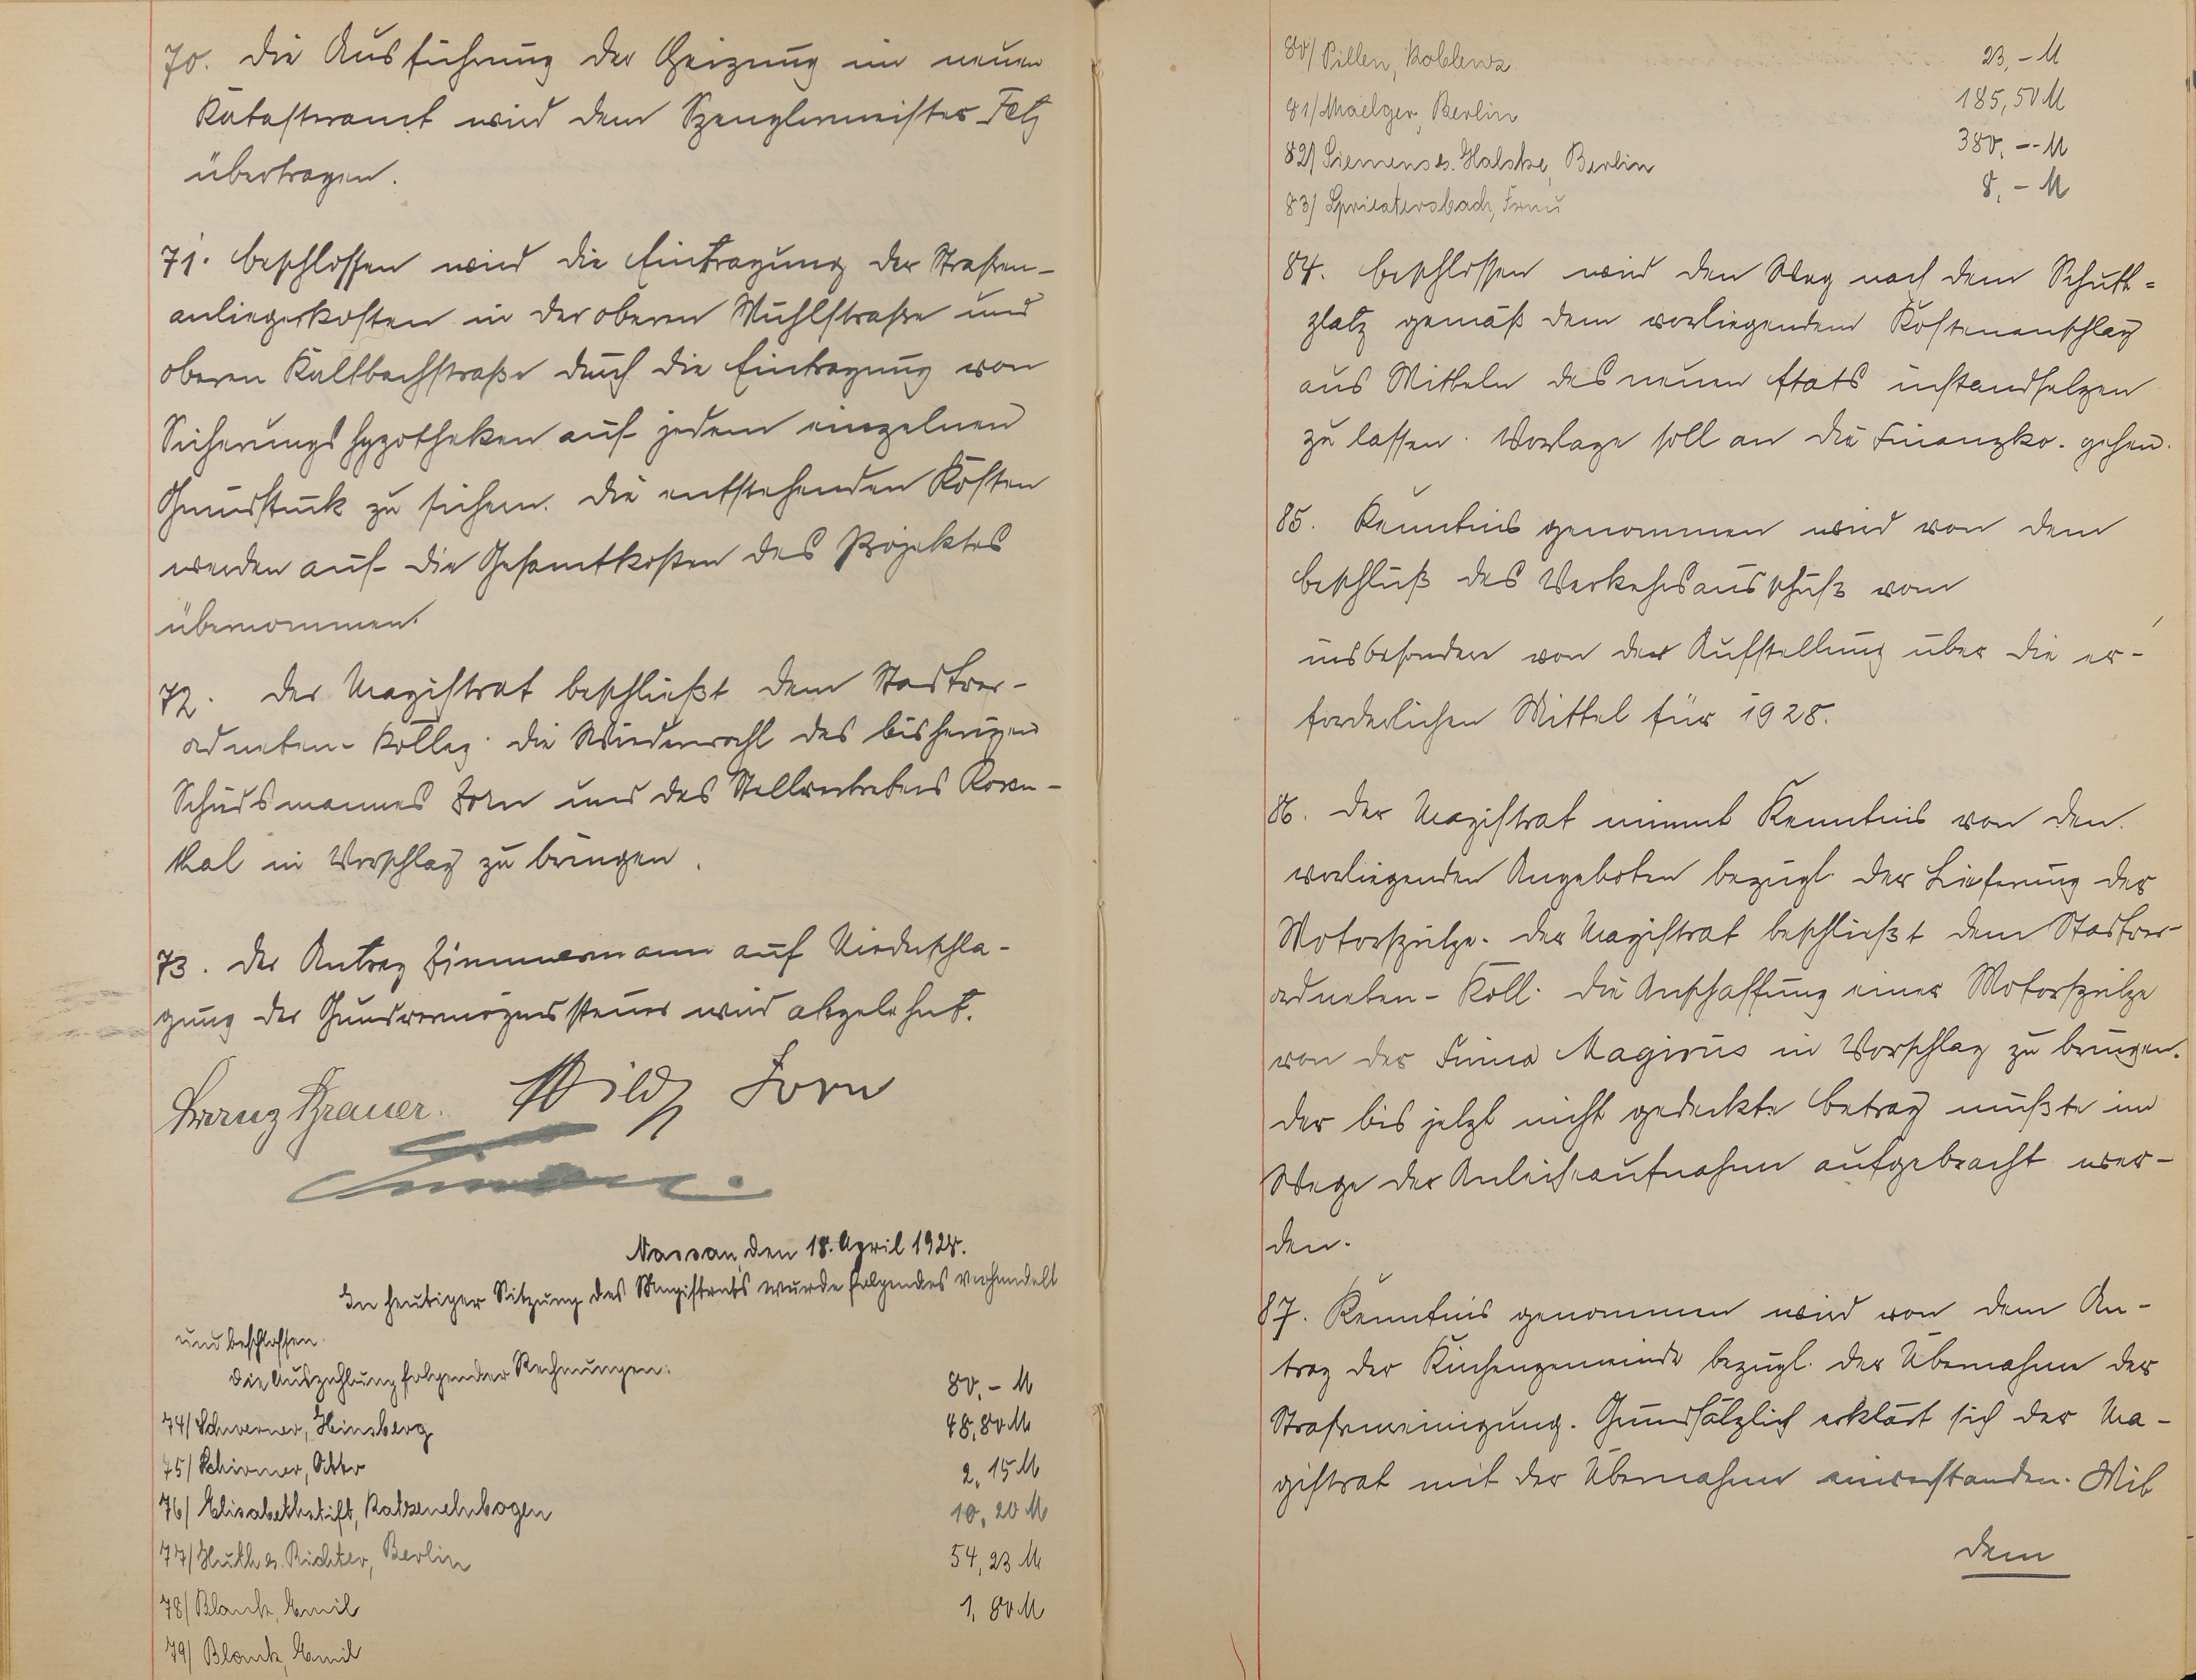 70. Die Ausführung der Heizung im neuen
Katasteramt wird dem Spenglermeister Fetz
übertragen.
71. Beschlossen wird die Eintragung der Straßen-
anliegerkosten in der oberen Mühlstraße und
oberen Kaltbachstraße durch die Eintragung von
Sicherungshypotheken auf jedem einzelnen
Grundstück zu sichern. Die entstehenden Kosten
werden auf die Gesamtkosten des Projektes
übernommen.
72. Der Magistrat beschließt dem Stadtver-
ordneten-Kolleg. die Wiederwahl des bisherigen
Schiedsmannes Zorn und des Stellvertreters Rosen-
thal in Vorschlag zu bringen.
73. Der Antrag Zimmermann auf Niederschla-
gung der Grundvermögenssteuer wird abgelehnt.
Franz Brauer. Wild Zorn
Nassau, den 18. April 1928.
In heutiger Sitzung des Magistrats wurde folgendes verhandelt
und beschlossen.
Die Auszahlung folgender Rechnungen:
74/ Schwerner, Hinsberg 80,- M
75/ Schirmer, Otto 48,80 M
76/ Elisabethstift, Katzenelnbogen 2,15 M
77/ Huth & Richter, Berlin 10,20 M
78/ Blank, Emil 54,23 M
79/ Blank, Emil 1,80 M
80/ Pillen, Koblenz 23,- M
81/ Maelger, Berlin 185,50 M
82/ Siemens & Halske, Berlin 380,-- M
83/ Spriestersbach, Frau 8,- M
84. Beschlossen wird den Weg nach dem Schutt-
platz gemäß dem vorliegendem Kostenanschlag
aus Mitteln des neuen Etats instandsetzen
zu lassen. Vorlage soll an die Finanzko. gehen.
85. Kenntnis genommen wird von dem
Beschluß des Verkehrsausschuß vom
insbesondere von der Aufstellung über die er-
forderlichen Mittel für 1928.
86. Der Magistrat nimmt Kenntnis von den
vorliegenden Angeboten bezügl. der Lieferung der
Motorspritze. Der Magistrat beschließt dem Stadtver-
ordneten-Koll. die Anschaffung einer Motorspritze
von der Firma Magirus in Vorschlag zu bringen.
Der bis jetzt nicht gedeckte Betrag müßte im
Wege der Anleiheaufnahme aufgebracht wer-
den.
87. Kenntnis genommen wird von dem An-
trag der Kirchengemeinde bezügl. der Übernahme der
Straßenreinigung. Grundsätzlich erklärt sich der Ma-
gistrat mit der Übernahme einverstanden. Mit
dem